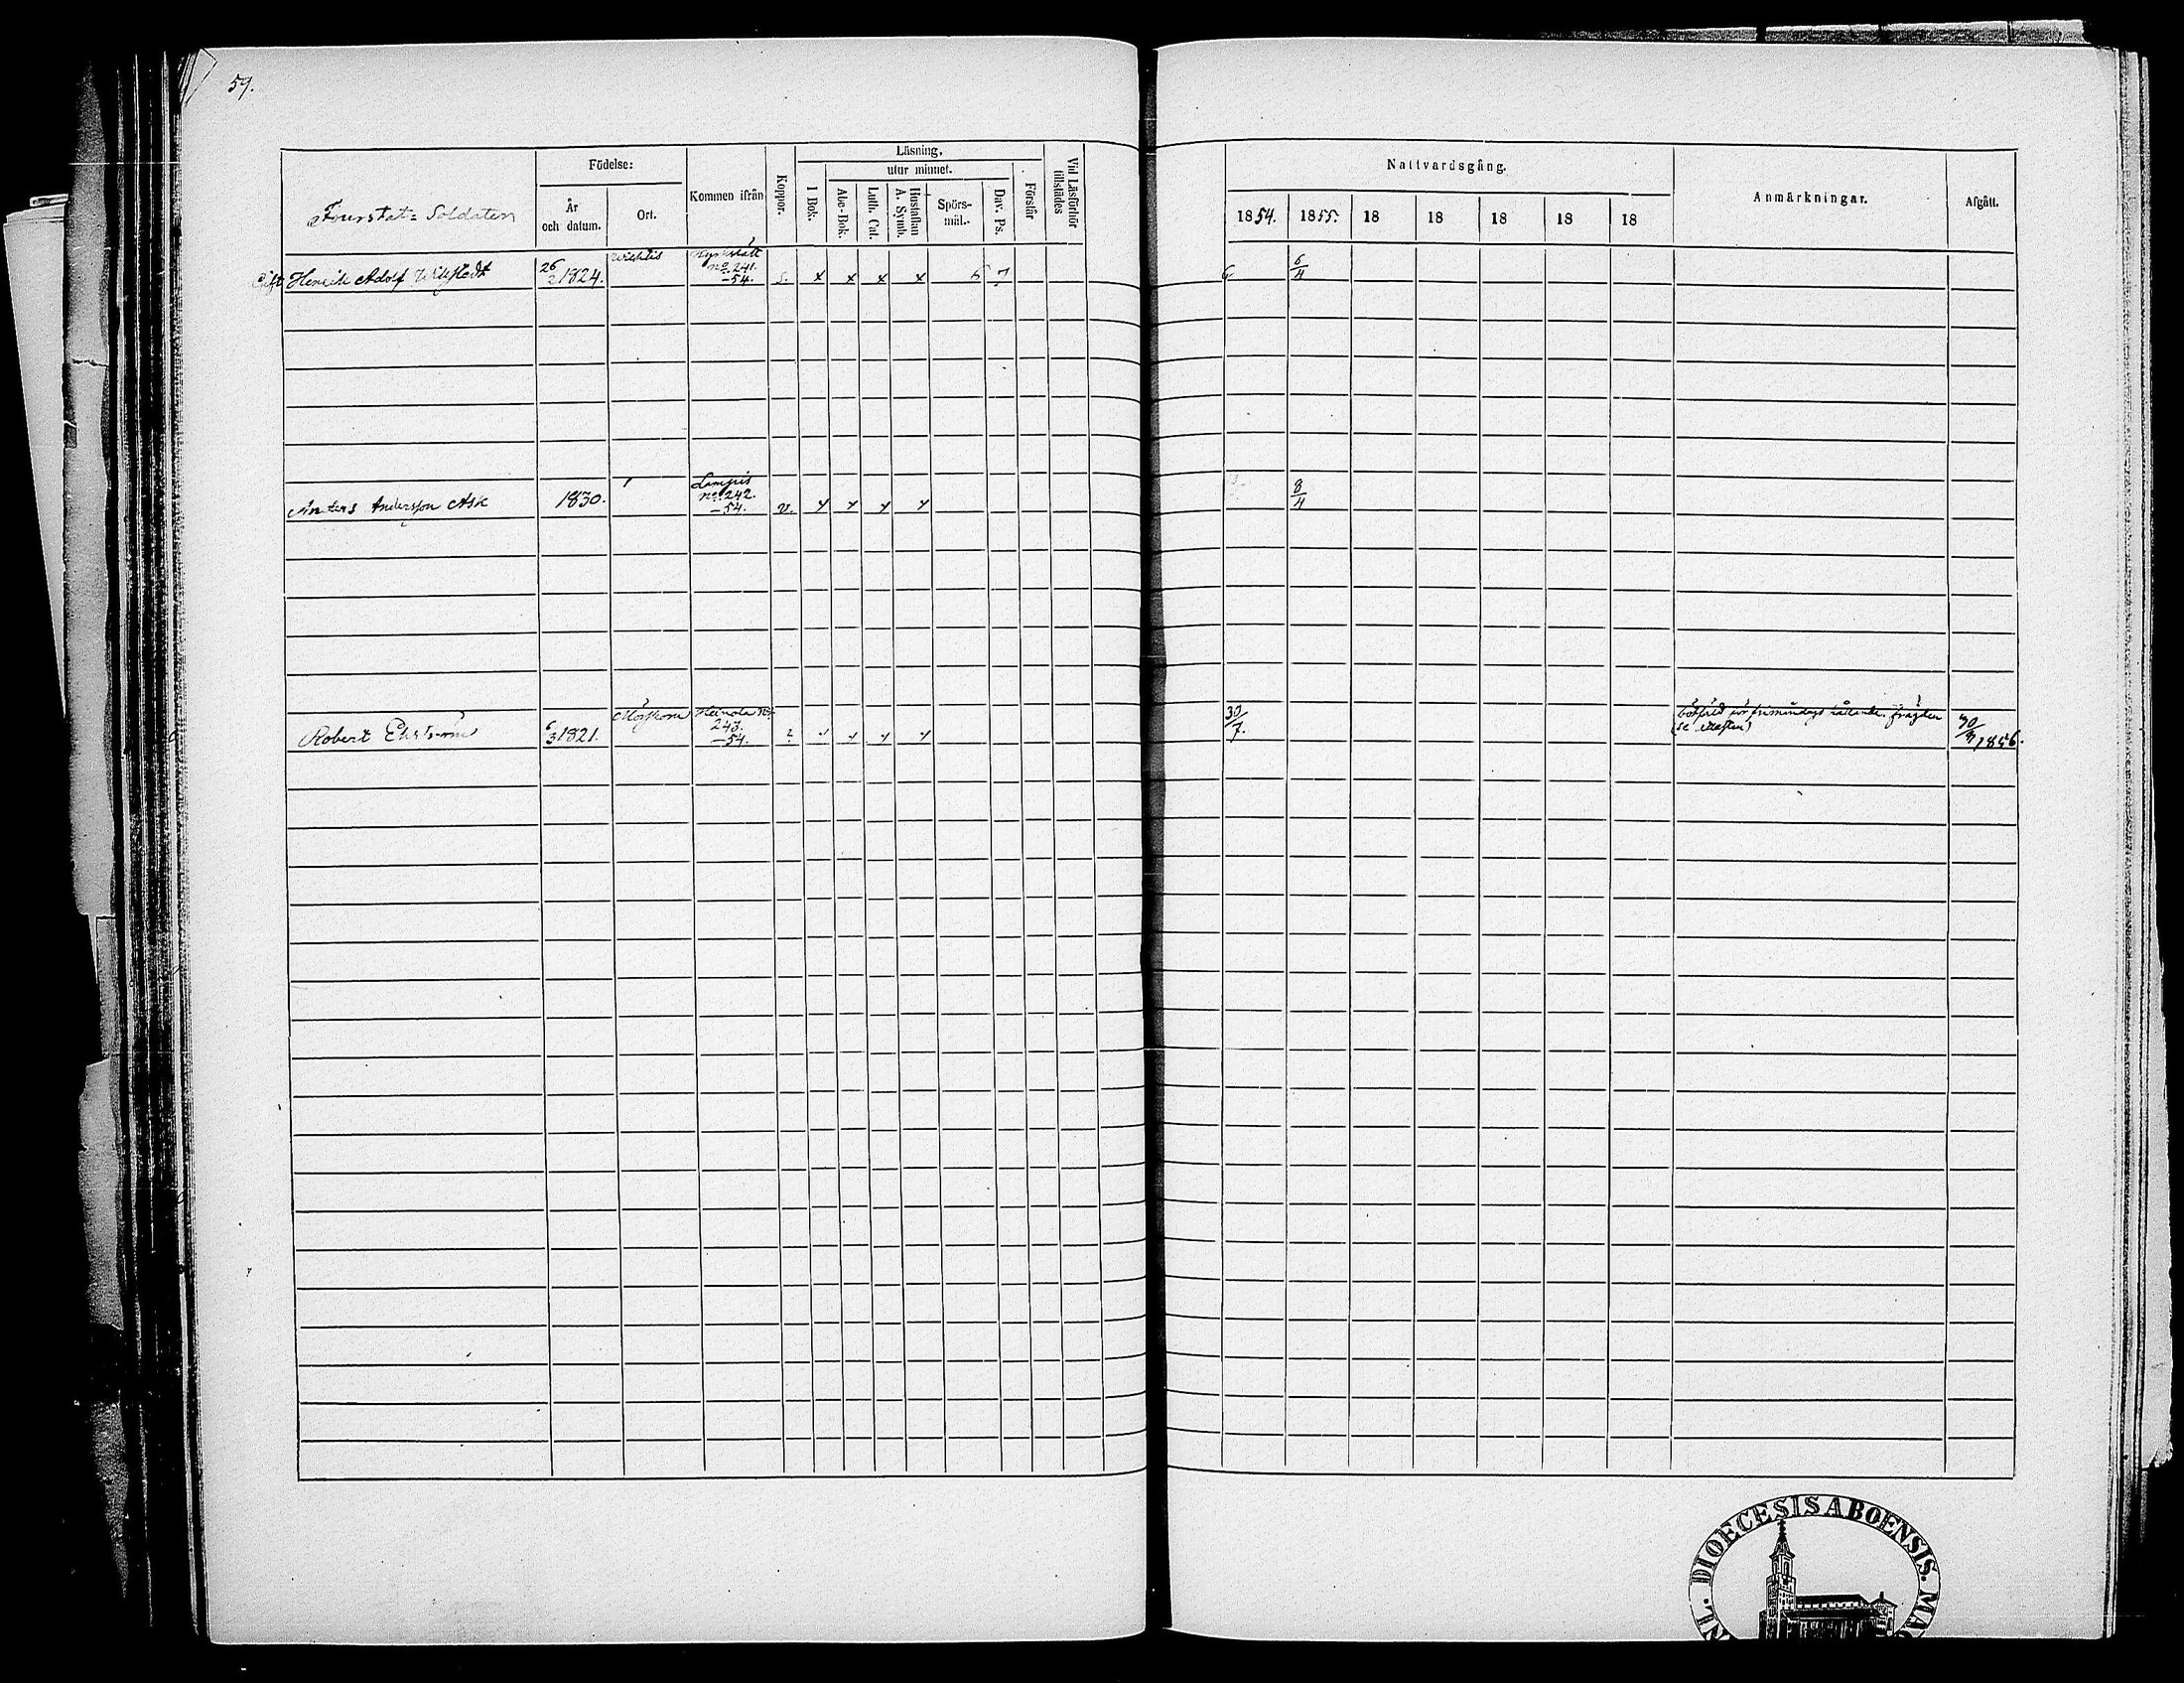 59.
Födelse:
Läsning,
utur minnet.
Soldaten
År
och datum.
Ort.
Kommen ifrån
Koppor.
I Bok.
Abc-Bok.
Luth. Cat.
Hustaflan
A. Symb.
Spörs-
mål.
Dav. Ps.
Förstår
Vid Läsförhör
tillstädes
Nattvardsgång.
1854.
1855.
18
18
18
18
18
Anmärkningar.
Afgått.
Gift Henrik Adolf
26/2 1824.
Wichtis
Kyrkslätt
No. 241.
-54.
s. x x x x 5 7
6
6/4
Anders Andersson Ask
1830.
Lampis
No. 242.
-54.
v. x x x x
8/4
Robert Ekström
6/3 1821.
Mörskom
Heinola No.
243.
-54.
x x x x
30/7.
30/3 1856.
DIOECESIS ABOENSIS. MA